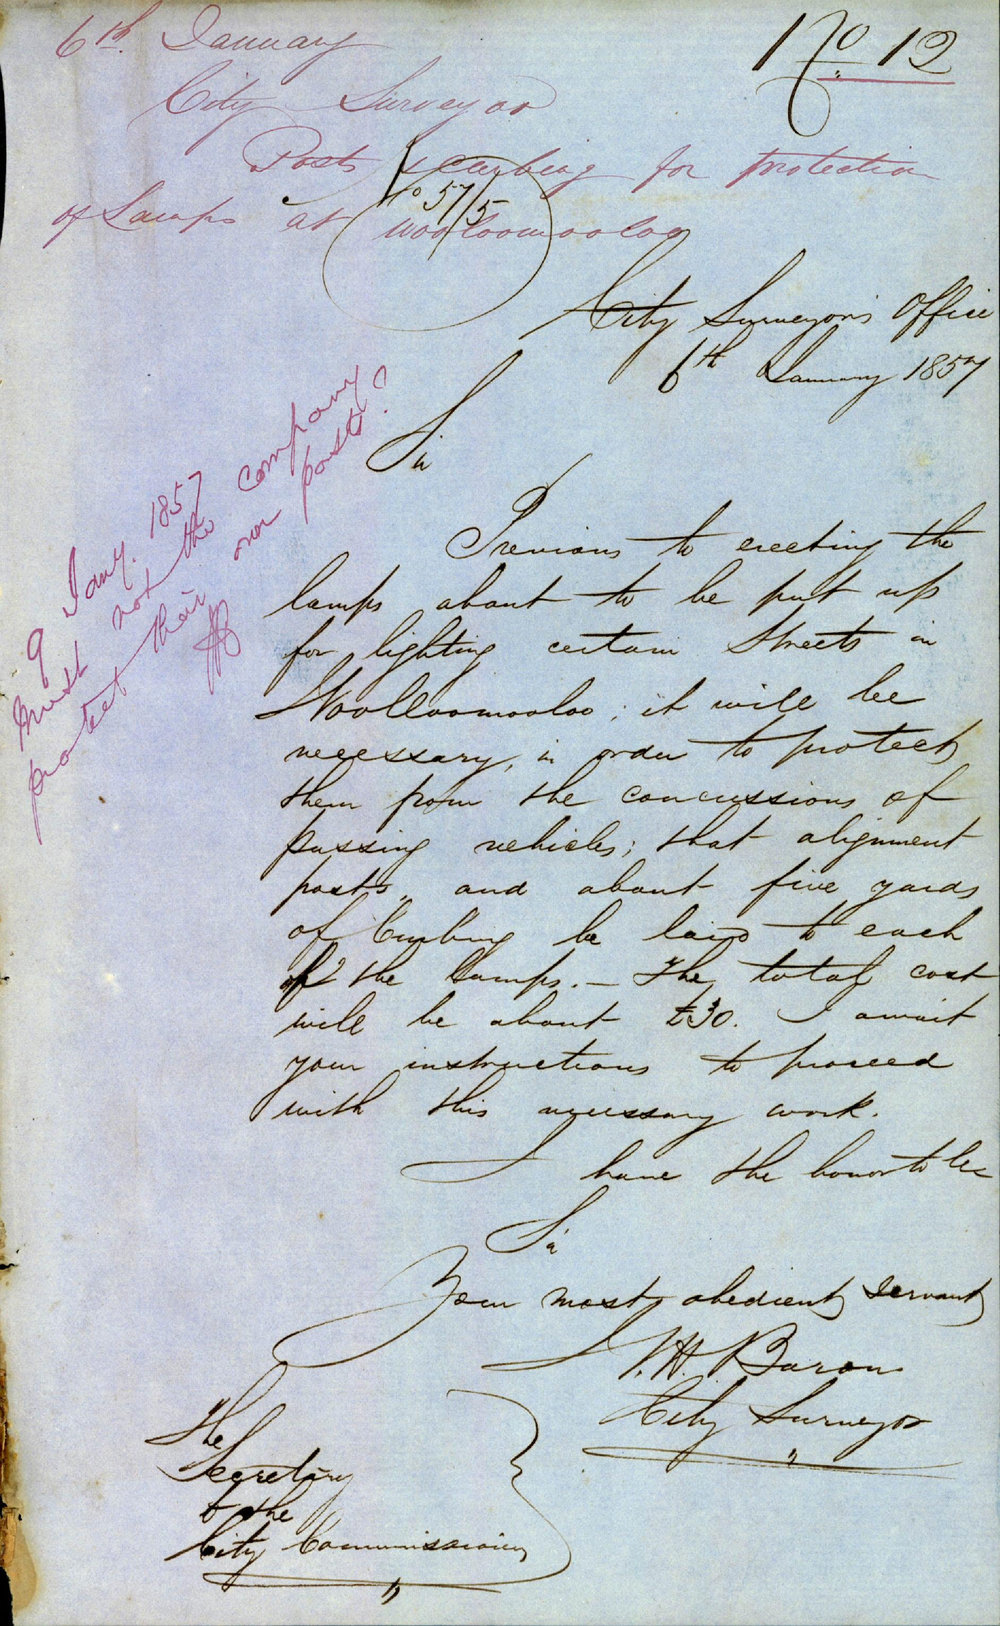 No 12
6th January
City Surveyor
Posts & curbing for protection
of Lamps at Wooloomooloo
No 57/5
City Surveyor's Office
6th January 1857
Sir
Previous to erecting the
lamps about to be put up
for lighting certain Streets in
Woolloomooloo; it will be
necessary, in order to protect
them from the concussions of
passing vehicles; that alignment
posts, and about five yards
of Curbing be laid to each
of the Lamps. — The total cost
will be about £30. I await
your instructions to proceed
with this necessary work.
I have the honor to be
Sir
Your most obedient servant
W. H. Baron
City Surveyor
The
Secretary
to the
City Commissioners
9 Jany. 1857
Must not the company
protect their own posts?